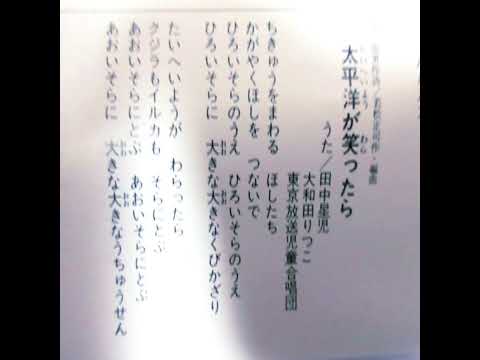 若松正司作・編曲
太平洋が笑ったら
たいへいよう わら
うた／田中星児
大和田りつこ
東京放送児童合唱団
ちきゅうをまわる ほしたち
かがやくほしを つないで
ひろいそらのうえ ひろいそらのうえ
ひろいそらに 大きな大きなくびかざり
たいへいようが わらったら
クジラもイルカも そらにとぶ
あおいそらにとぶ あおいそらにとぶ
あおいそらに 大きな大きなうちゅうせん